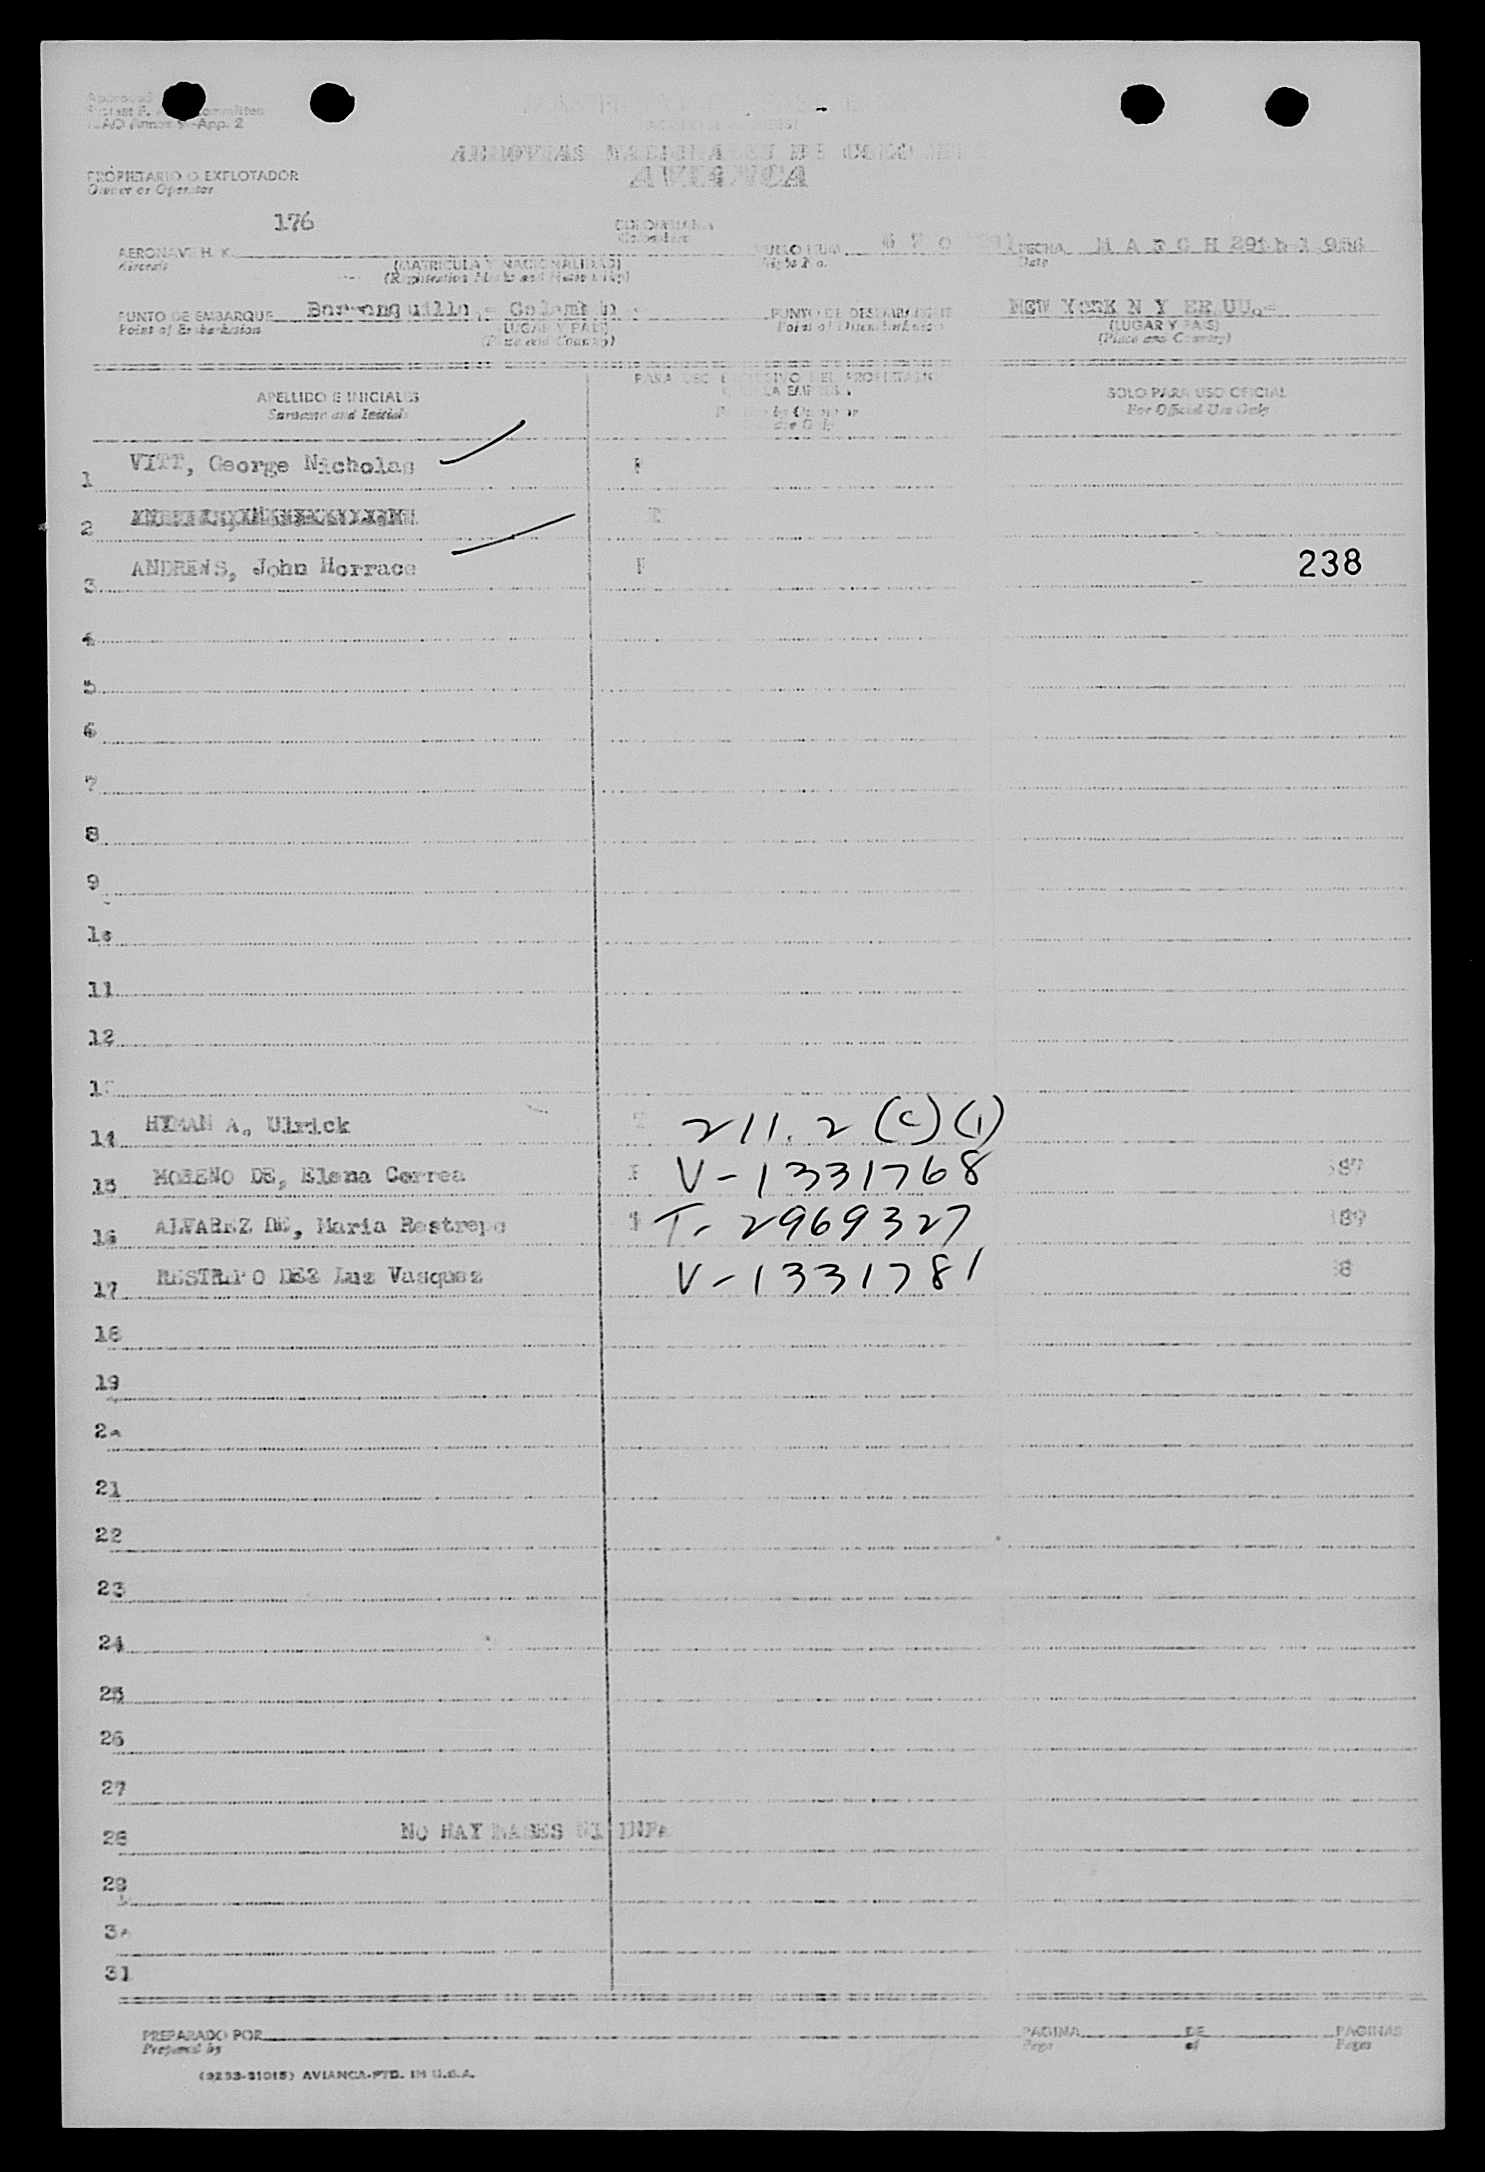 Approved
ICAO Annex 9-App. 2
AEROVIAS NACIONALES DE COLOMBIA
AVIANCA
PROPIETARIO O EXPLOTADOR
Owner or Operator
176
COLOMBIANA
Colombian
AERONAVE H. K.
Aircraft
(MATRICULA Y NACIONALIDAD)
(Registration Marks and Nationality)
VUELO NUM.
Flight No.
FECHA MARCH 29th
Date
PUNTO DE EMBARQUE Barranquilla,- Colombia
Point of Embarkation
(LUGAR Y PAIS)
(Place and Country)
PUNTO DE DESEMBARQUE NEW YORK N Y EE UU.-
Point of Disembarkation
(LUGAR Y PAIS)
(Place and Country)
APELLIDO E INICIALES
Surname and Initials
PARA USO EXCLUSIVO DEL PROPIETARIO
O DE LA EMPRESA
SOLO PARA USO OFICIAL
For Official Use Only
1 VITT, George Nicholas
2
3 ANDREWS, John Horrace 238
4
5
6
7
8
9
10
11
12
13
14 HYMAN A., Ulrick 211.2 (c)(1)
15 MORENO DE, Elena Correa V-1331768
16 ALVAREZ DE, Maria Restrepo T- 2969327
17 RESTREPO DE2 Luz Vasquez V-1331781
18
19
20
21
22
23
24
25
26
27
28 NO HAY BASES NI INFA
29
30
31
PREPARADO POR
Prepared by
PAGINA DE PAGINAS
Page of Pages
(9253-51015) AVIANCA-PTD. IN U.S.A.